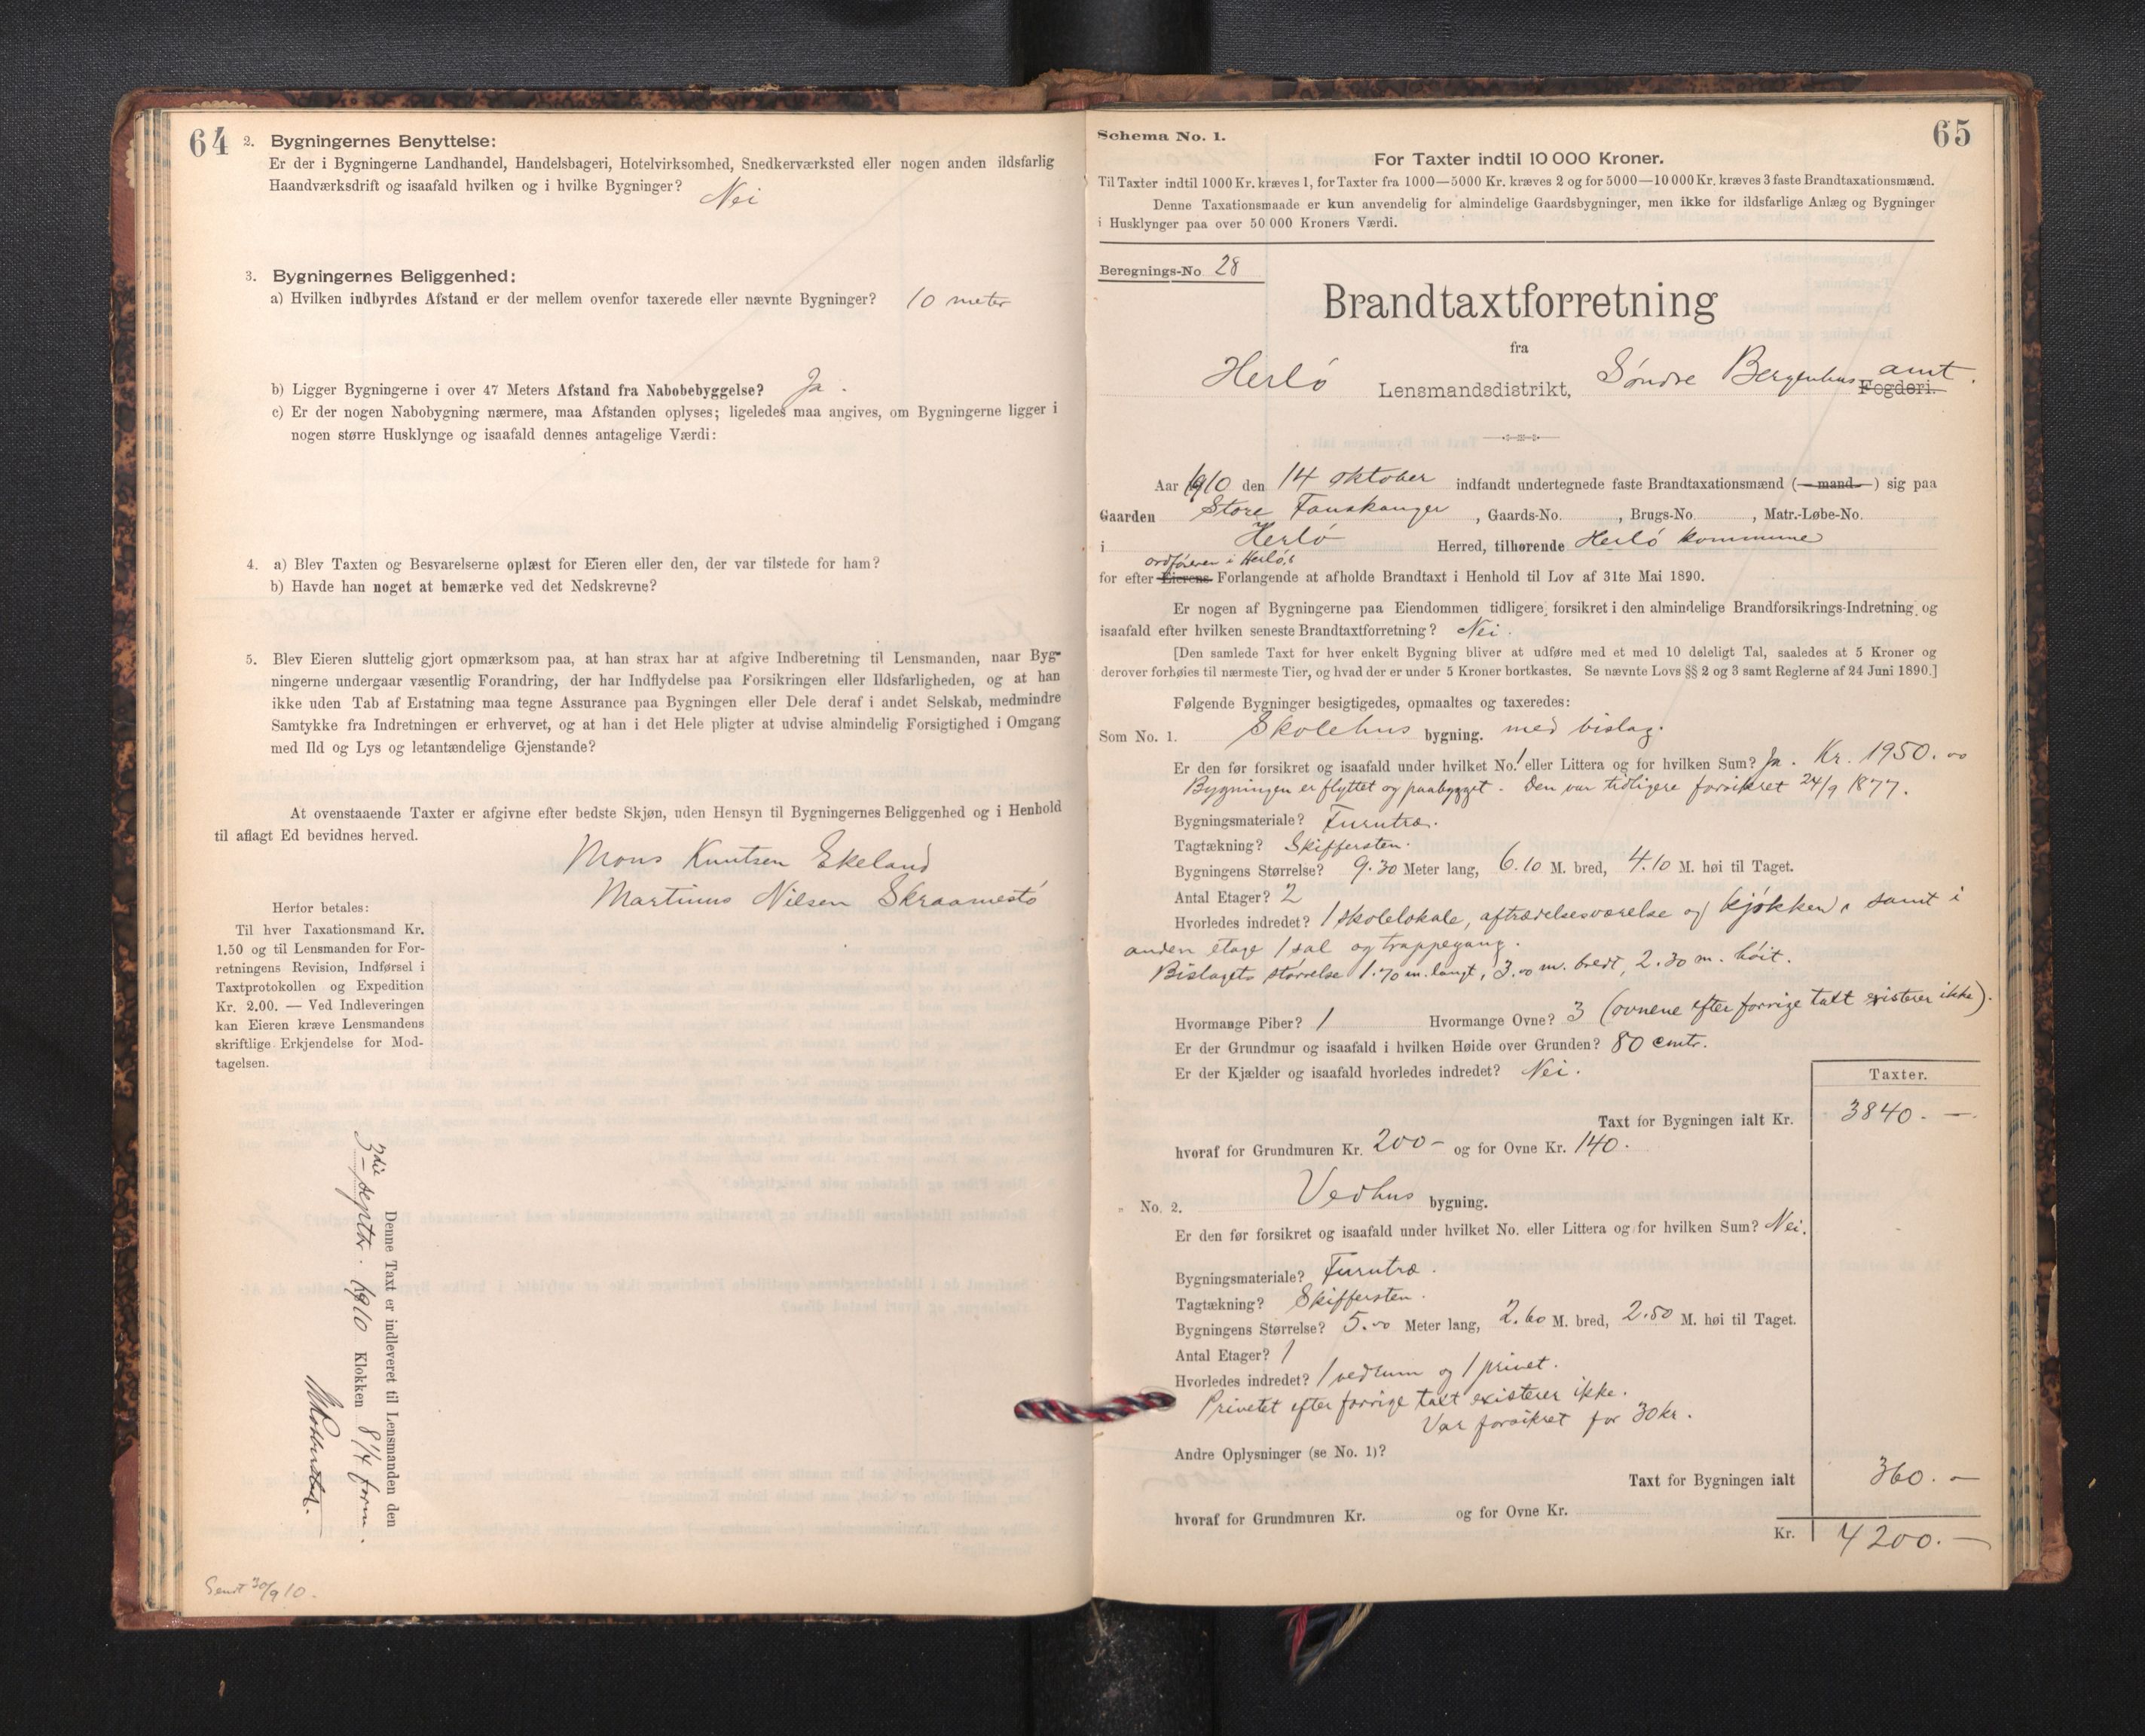 64
2. Bygningernes Benyttelse:
Er der i Bygningerne Landhandel, Handelsbageri, Hotelvirksomhed, Snedkerværksted eller nogen anden ildsfarlig
Haandværksdrift og isaafald hvilken og i hvilke Bygninger? Nei
3. Bygningernes Beliggenhed:
a) Hvilken indbyrdes Afstand er der mellem ovenfor taxerede eller nævnte Bygninger? 10 meter
b) Ligger Bygningerne i over 47 Meters Afstand fra Nabobebyggelse? Ja.
c) Er der nogen Nabobygning nærmere, maa Afstanden oplyses; ligeledes maa angives, om Bygningerne ligger i
nogen større Husklynge og isaafald dennes antagelige Værdi:
4. a) Blev Taxten og Besvarelserne oplæst for Eieren eller den, der var tilstede for ham?
b) Havde han noget at bemærke ved det Nedskrevne?
5. Blev Eieren sluttelig gjort opmærksom paa, at han strax har at afgive Indberetning til Lensmanden, naar Byg-
ningerne undergaar væsentlig Forandring, der har Indflydelse paa Forsikringen eller Ildsfarligheden, og at han
ikke uden Tab af Erstatning maa tegne Assurance paa Bygningen eller Dele deraf i andet Selskab, medmindre
Samtykke fra Indretningen er erhvervet, og at han i det Hele pligter at udvise almindelig Forsigtighed i Omgang
med Ild og Lys og letantændelige Gjenstande?
At ovenstaaende Taxter er afgivne efter bedste Skjøn, uden Hensyn til Bygningernes Beliggenhed og i Henhold
til aflagt Ed bevidnes herved.
Mons Knutsen Ekeland
Martinus Nilsen Skraamestø
Herfor betales:
Til hver Taxationsmand Kr.
1.50 og til Lensmanden for For-
retningens Revision, Indførsel i
Taxtprotokollen og Expedition
Kr. 2.00. — Ved Indleveringen
kan Eieren kræve Lensmandens
skriftlige Erkjendelse for Mod-
tagelsen.
Denne Taxt er indleveret til Lensmanden den
3die septbr. 1910 Klokken 8 1/4 form.
Sendt 30/9 10.
Schema No. 1.
65
For Taxter indtil 10 000 Kroner.
Til Taxter indtil 1000 Kr. kræves 1, for Taxter fra 1000—5000 Kr. kræves 2 og for 5000—10 000 Kr. kræves 3 faste Brandtaxationsmænd.
Denne Taxationsmaade er kun anvendelig for almindelige Gaardsbygninger, men ikke for ildsfarlige Anlæg og Bygninger
i Husklynger paa over 50 000 Kroners Værdi.
Beregnings-No 28
Brandtaxtforretning
fra
Herlø Lensmandsdistrikt, Søndre Bergenhus amt. Fogderi.
Aar 1910 den 14 oktober indfandt undertegnede faste Brandtaxationsmænd (—mand—) sig paa
Gaarden Store Fauskanger, Gaards-No. , Brugs-No. , Matr.-Løbe-No.
i Herlø Herred, tilhørende Herlø kommune
ordføreren i Herløs
for efter Eierens Forlangende at afholde Brandtaxt i Henhold til Lov af 31te Mai 1890.
Er nogen af Bygningerne paa Eiendommen tidligere forsikret i den almindelige Brandforsikrings-Indretning og
isaafald efter hvilken seneste Brandtaxtforretning? Nei.
[Den samlede Taxt for hver enkelt Bygning bliver at udføre med et med 10 deleligt Tal, saaledes at 5 Kroner og
derover forhøies til nærmeste Tier, og hvad der er under 5 Kroner bortkastes. Se nævnte Lovs §§ 2 og 3 samt Reglerne af 24 Juni 1890.]
Følgende Bygninger besigtigedes, opmaaltes og taxeredes:
Som No. 1. Skolehus bygning. med bislag.
Er den før forsikret og isaafald under hvilket No. 1 eller Littera og for hvilken Sum? Ja. Kr. 1950.00
Bygningen er flyttet og paabygget. Den var tidligere forsikret 24/9 1877.
Bygningsmateriale? Furutræ.
Tagtækning? Skiffersten.
Bygningens Størrelse? 9.30 Meter lang, 6.10 M. bred, 4.10 M. høi til Taget.
Antal Etager? 2
Hvorledes indredet? 1 skolelokale, aftrædelsesværelse og kjøkken, samt i
anden etage 1 sal og trappegang.
Bislagets størrelse 1.70 m. langt, 3.00 m. bredt, 2.30 m. høit.
Hvormange Piber? 1 Hvormange Ovne? 3 (ovnene efter forrige takt existerer ikke).
Er der Grundmur og isaafald i hvilken Høide over Grunden? 80 cmtr.
Er der Kjælder og isaafald hvorledes indredet? Nei.
Taxter.
Taxt for Bygningen ialt Kr. 3840.—
hvoraf for Grundmuren Kr. 200— og for Ovne Kr. 140.
" No. 2. Vedhus bygning.
Er den før forsikret og isaafald under hvilket No. eller Littera og for hvilken Sum? Nei.
Bygningsmateriale? Furutræ.
Tagtækning? Skiffersten.
Bygningens Størrelse? 5.00 Meter lang, 2.60 M. bred, 2.50 M. høi til Taget.
Antal Etager? 1
Hvorledes indredet? 1 vedrum og 1 privet.
Privetet efter forrige takt existerer ikke.
Var forsikret for 30 kr.
Andre Oplysninger (se No. 1)?
Taxt for Bygningen ialt 360.—
hvoraf for Grundmuren Kr. og for Ovne Kr.
Kr. 4200.—